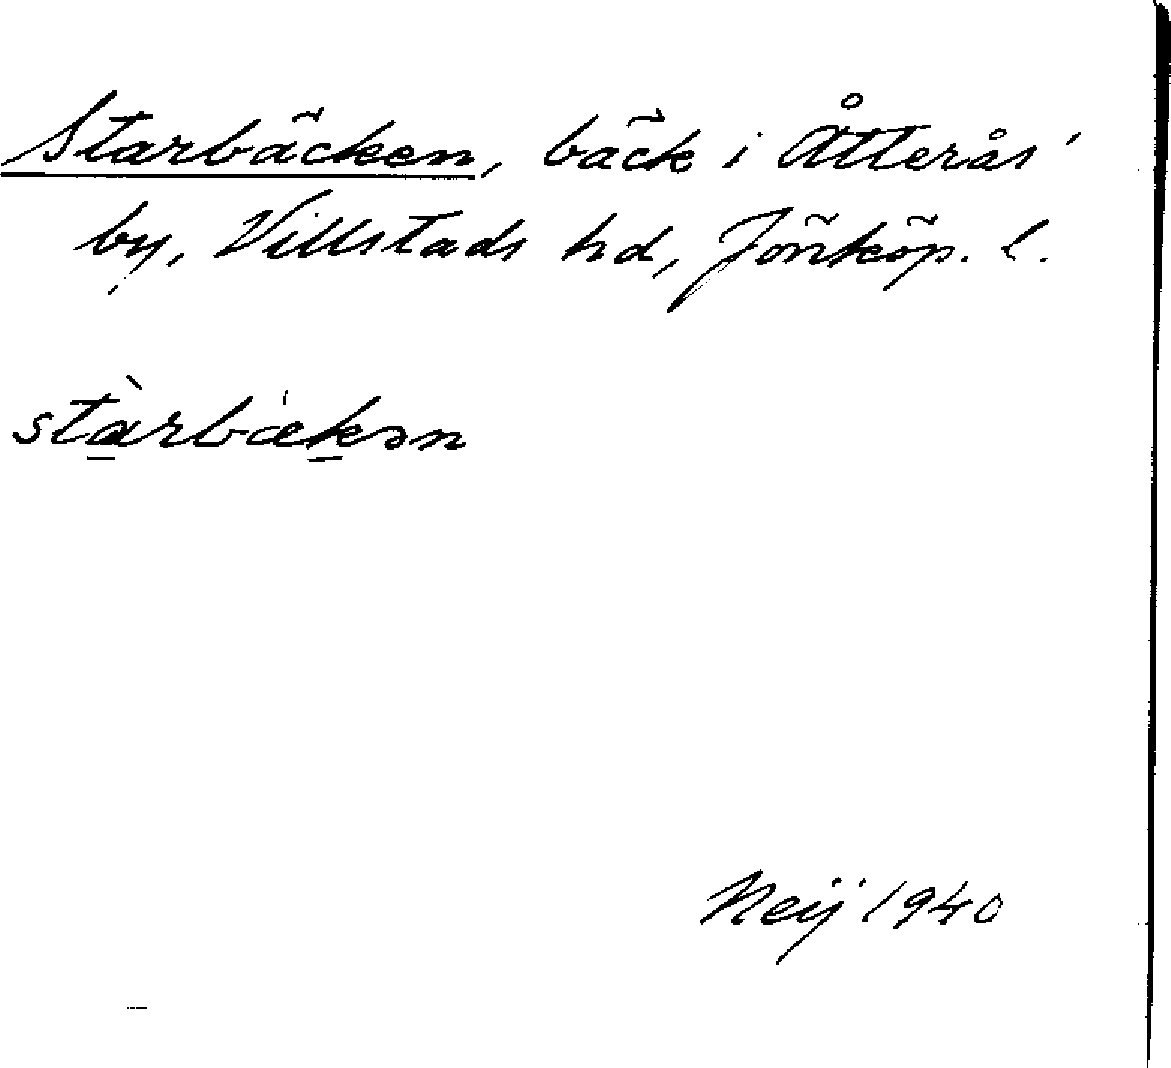 Starbäcken, bäck i Åtterås'
by, Villstads hd, Jönköp. l.
stàrbækən
Neij 1940